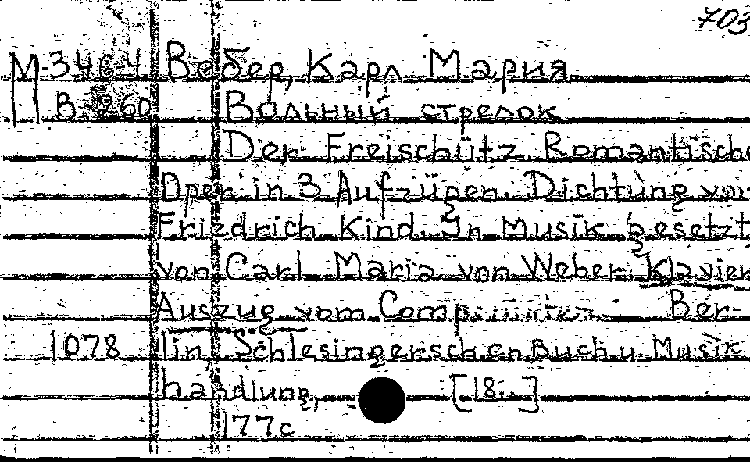 703
М-3464 Вебер, Карл Мария
В-260 Вольный стрелок
Der Freischütz. Romantische
Oper in 3 Aufzügen. Dichtung von
Friedrich Kind. In Musik gesetzt
von Carl Maria von Weber. Klavier
Auszug vom Componisten. Ber-
1078 lin, Schlesingerschen Buch u. Musik
handlung, [18..]
177 с